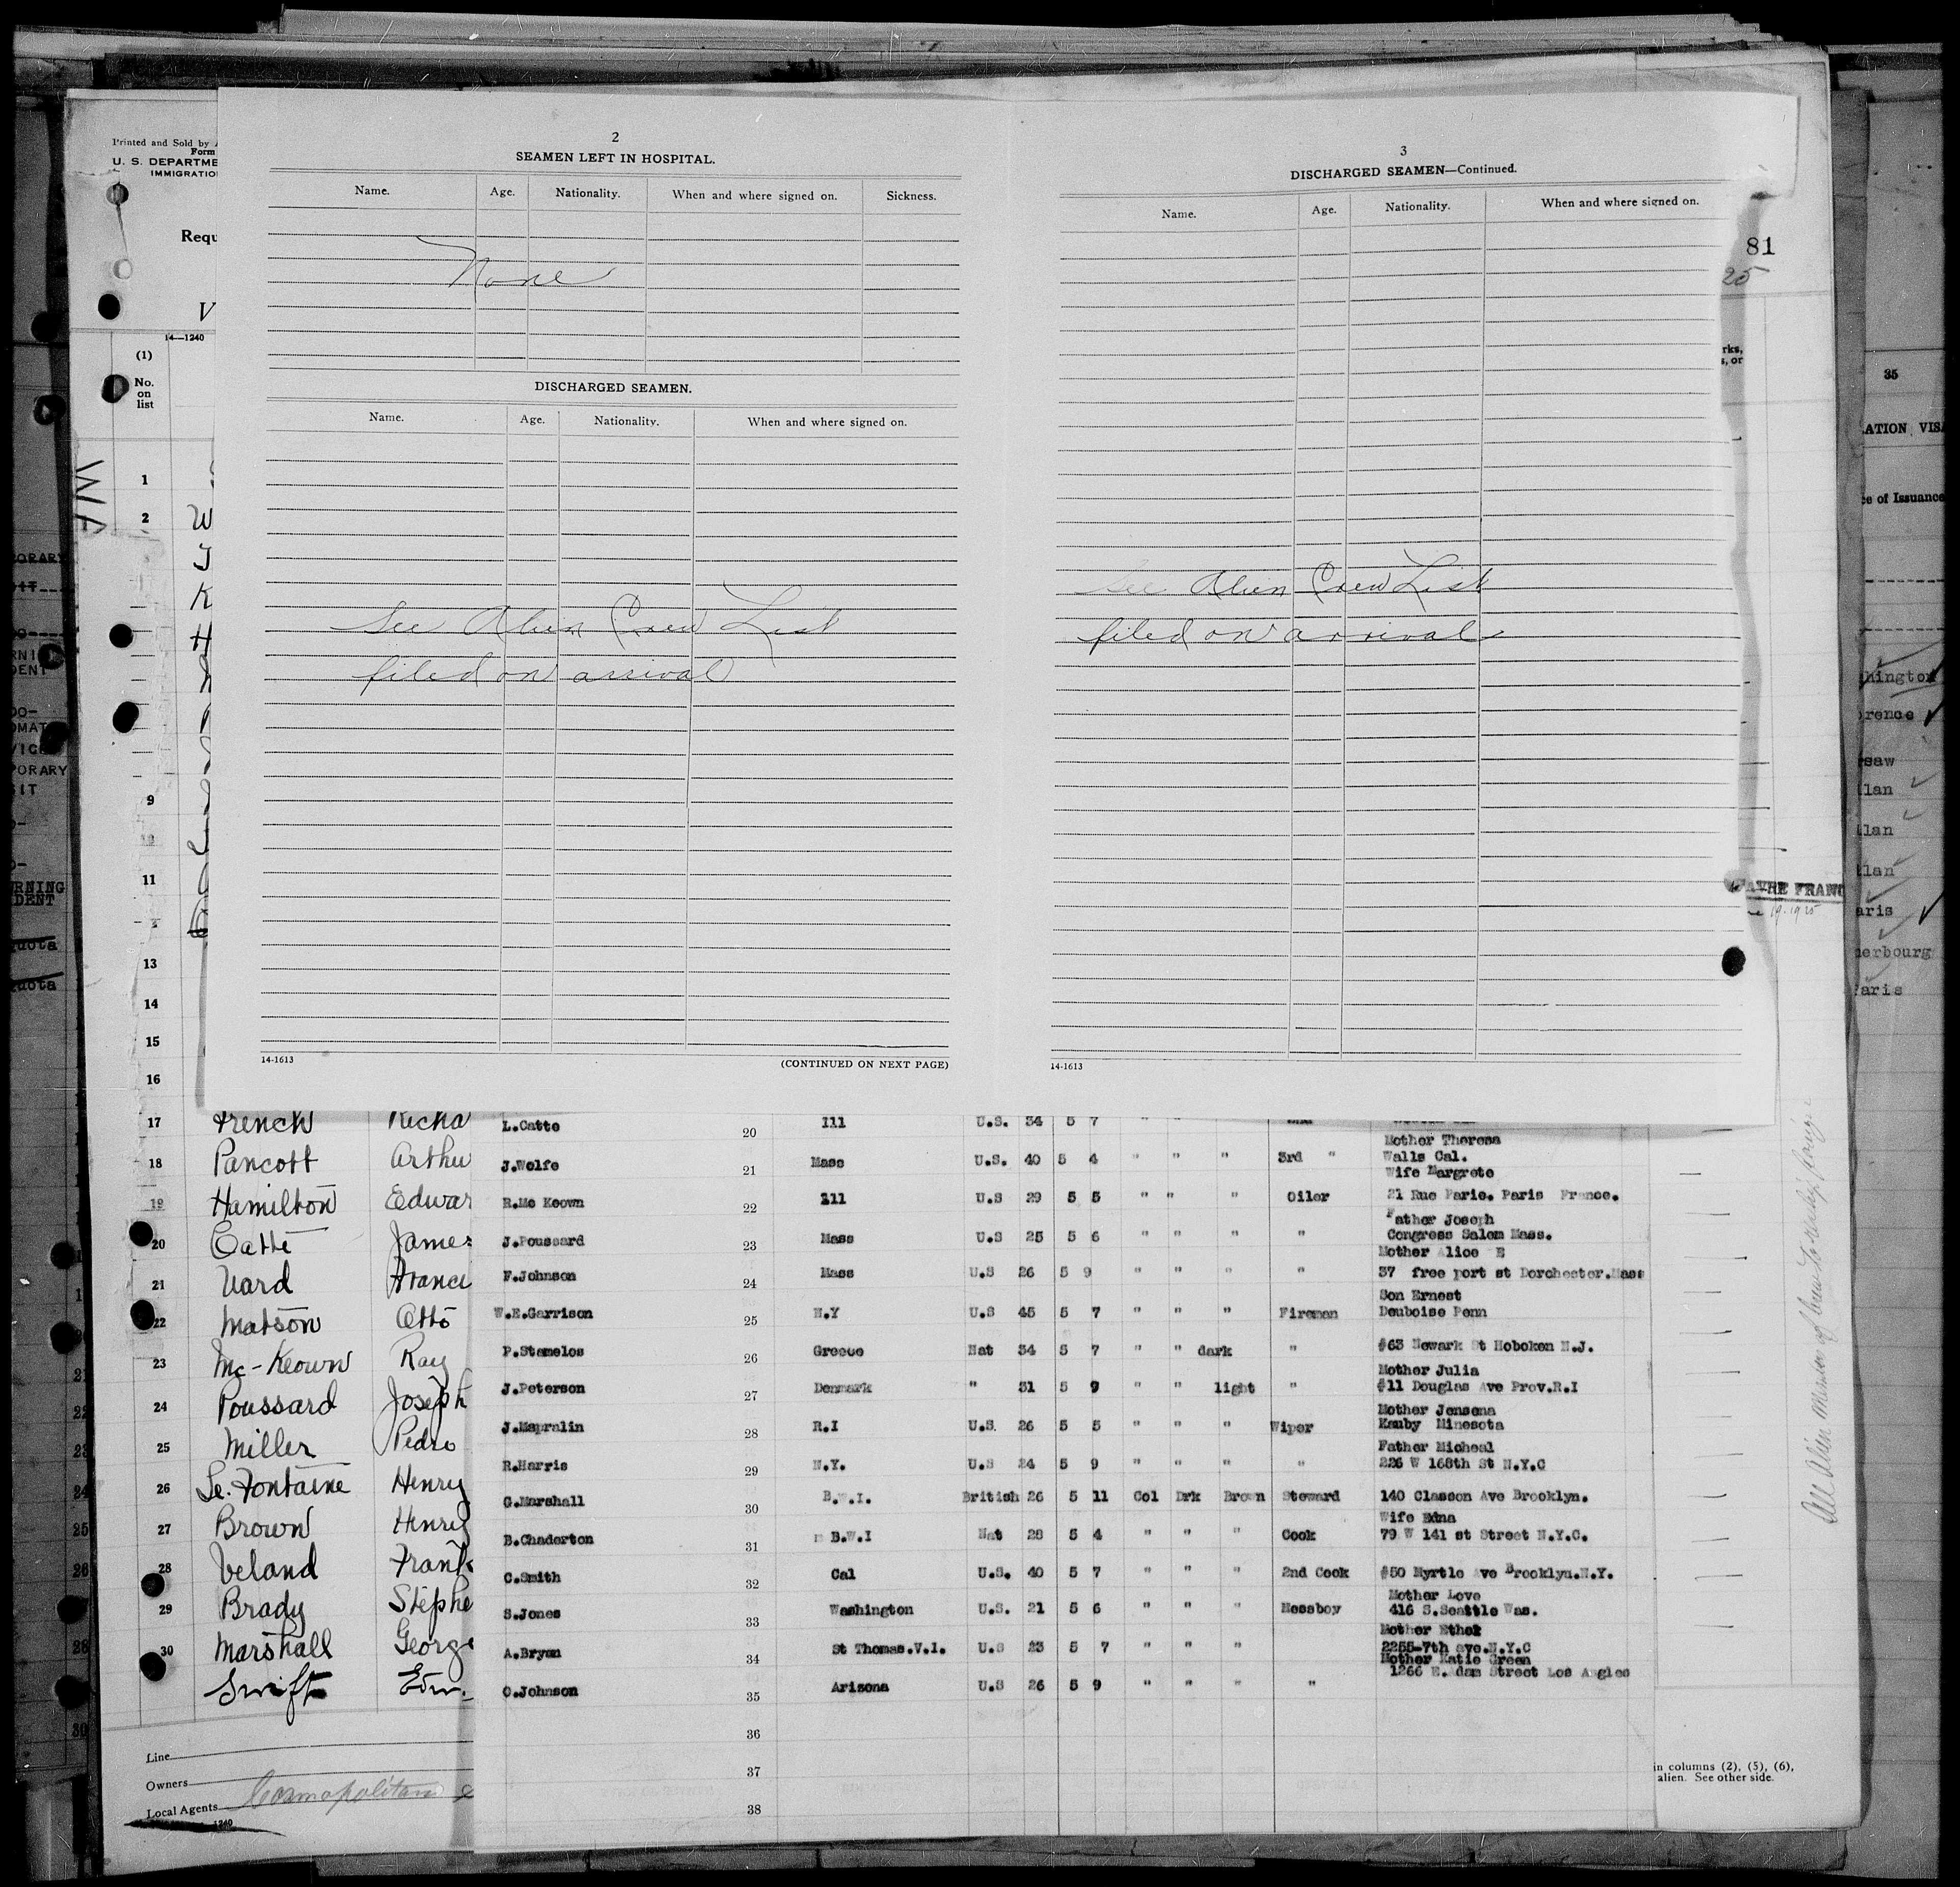 Printed and Sold by
Form
U. S. DEPARTME
IMMIGRATIO
Requ
V
14—1240
(1)
No.
on
list
WA
1
2 W
J
K
H
9
11
13
14
15
16
2
SEAMEN LEFT IN HOSPITAL.
Name. Age. Nationality. When and where signed on. Sickness.
None
DISCHARGED SEAMEN.
Name. Age. Nationality. When and where signed on.
See Alien Crew List
filed on arrival
14-1613 (CONTINUED ON NEXT PAGE)
3
DISCHARGED SEAMEN—Continued.
Name. Age. Nationality. When and where signed on.
See Alien Crew List
filed on arrival
14-1613
81
25
rks,
s, or
AVRE FRANC
19-1925
35
ATION VISA
ce of Issuance
hington
orence
rsaw
ilan
ilan
ilan
aris
herbourg
Paris
PORARY
DENT
OMAT
VICE
PORARY
SIT
RNING
DENT
quota
quota
17 French Richa
18 Pancott Arthu
19 Hamilton Edwar
20 Catte James
21 Ward Franci
22 Matson Otto
23 Mc-Keown Ray
24 Poussard Joseph
25 Miller Pedro
26 Le. Fontaine Henry
27 Brown Henry
28 Veland Frank
29 Brady Stephe
30 Marshall George
Swift Edw.
L.Catte 20 Ill U.S. 34 5 7 " "
Mother Theresa
J.Wolfe 21 Mass U.S. 40 5 4 " " " 3rd " Walls Cal.
Wife Margrete
R.Mc Keown 22 Ill U.S 29 5 5 " " " Oiler 21 Rue Parie. Paris France.
Father Joseph
J.Poussard 23 Mass U.S 25 5 6 " " " " Congress Salem Mass.
Mother Alice E
F.Johnson 24 Mass U.S 26 5 9 " " " " 37 free port st Dorchester.Mass
Son Ernest
W.E.Garrison 25 N.Y U.S 45 5 7 " " " Fireman Deuboise Penn
P.Stamelos 26 Greece Nat 34 5 7 " " dark " #63 Newark St Hoboken N.J.
Mother Julia
J.Peterson 27 Denmark " 31 5 9 " " light " #11 Douglas Ave Prov.R.I
Mother Jensena
J.Mapralin 28 R.I U.S. 26 5 5 " " " Wiper Kauby Minesota
Father Micheal
R.Harris 29 N.Y. U.S 24 5 9 " " " " 226 W 168th St N.Y.C
G.Marshall 30 B.W.I. British 26 5 11 Col Drk Brown Steward 140 Classon Ave Brooklyn.
Wife Edna
B.Chaderton 31 B.W.I Nat 28 5 4 " " " Cook 79 W 141 st Street N.Y.C.
C.Smith 32 Cal U.S. 40 5 7 " " " 2nd Cook #50 Myrtle Ave Brooklyn.N.Y.
Mother Love
S.Jones 33 Washington U.S. 21 5 6 " " " Messboy 416 S.Seattle Was.
Mother Ethel
A.Bryan 34 St Thomas.V.I. U.S 23 5 7 " " " 2255-7th ave.N.Y.C
Mother Katie Green
1266 E.Adam Street Los Angles
O.Johnson 35 Arizona U.S 26 5 9 " " " "
36
37
38
Line
Owners
Local Agents Cosmopolitan
1240
in columns (2), (5), (6),
alien. See other side.